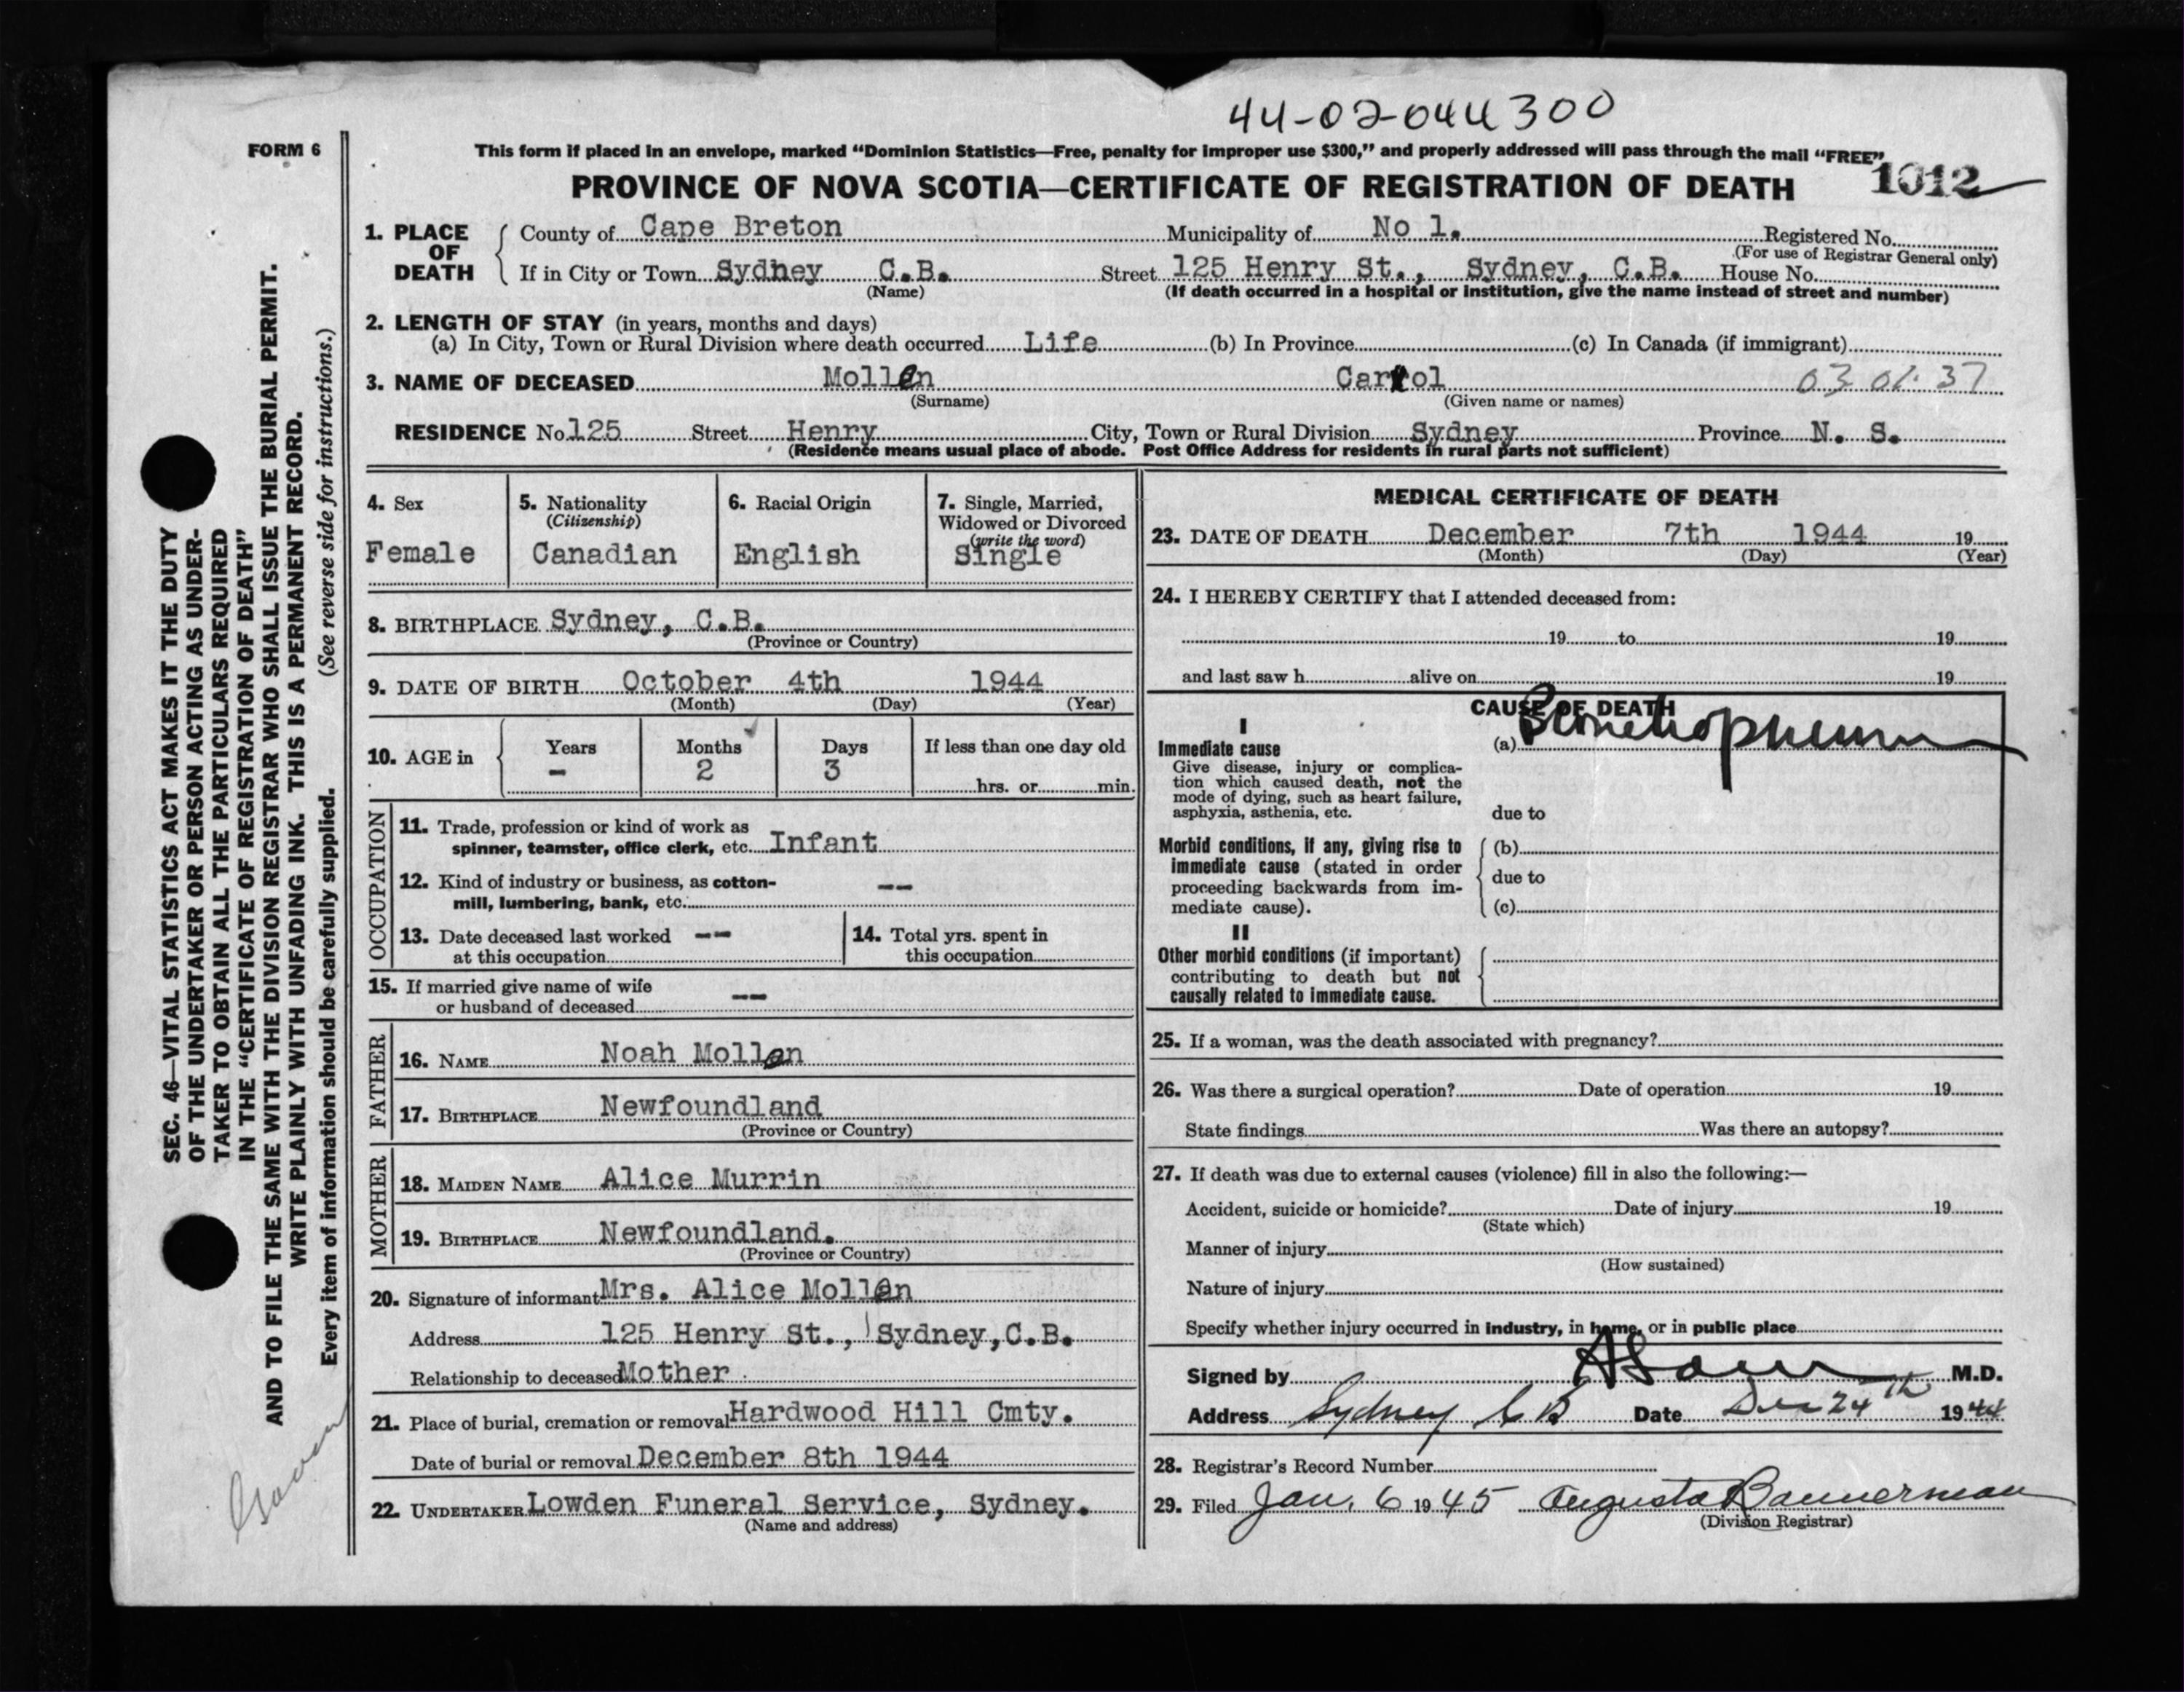 44-02-044300
FORM 6
This form if placed in an envelope, marked “Dominion Statistics—Free, penalty for improper use $300,” and properly addressed will pass through the mail “FREE”
PROVINCE OF NOVA SCOTIA—CERTIFICATE OF REGISTRATION OF DEATH 1012
1. PLACE OF DEATH County of Cape Breton Municipality of No 1. Registered No.
(For use of Registrar General only)
If in City or Town Sydney C.B. Street 125 Henry St., Sydney, C.B. House No.
(Name) (If death occurred in a hospital or institution, give the name instead of street and number)
2. LENGTH OF STAY (in years, months and days)
(a) In City, Town or Rural Division where death occurred Life (b) In Province (c) In Canada (if immigrant)
3. NAME OF DECEASED Mollen Carol 03 01 37
(Surname) (Given name or names)
RESIDENCE No. 125 Street Henry City, Town or Rural Division Sydney Province N. S.
(Residence means usual place of abode. Post Office Address for residents in rural parts not sufficient)
4. Sex
Female
5. Nationality
(Citizenship)
Canadian
6. Racial Origin
English
7. Single, Married,
Widowed or Divorced
(write the word)
Single
8. BIRTHPLACE Sydney, C.B.
(Province or Country)
9. DATE OF BIRTH October 4th 1944
(Month) (Day) (Year)
10. AGE in Years Months Days If less than one day old
- 2 3 hrs. or min.
OCCUPATION
11. Trade, profession or kind of work as
spinner, teamster, office clerk, etc. Infant
12. Kind of industry or business, as cotton- --
mill, lumbering, bank, etc.
13. Date deceased last worked --
at this occupation
14. Total yrs. spent in
this occupation
15. If married give name of wife
or husband of deceased --
FATHER
16. NAME Noah Mollen
17. BIRTHPLACE Newfoundland
(Province or Country)
MOTHER
18. MAIDEN NAME Alice Murrin
19. BIRTHPLACE Newfoundland.
(Province or Country)
20. Signature of informant Mrs. Alice Mollen
Address 125 Henry St., Sydney, C.B.
Relationship to deceased Mother
21. Place of burial, cremation or removal Hardwood Hill Cmty.
Date of burial or removal December 8th 1944
22. UNDERTAKER Lowden Funeral Service, Sydney.
(Name and address)
MEDICAL CERTIFICATE OF DEATH
23. DATE OF DEATH December 7th 1944 19
(Month) (Day) (Year)
24. I HEREBY CERTIFY that I attended deceased from:
19 to 19
and last saw h alive on 19
CAUSE OF DEATH
I
Immediate cause (a)
Give disease, injury or complica-
tion which caused death, not the
mode of dying, such as heart failure,
asphyxia, asthenia, etc. due to
Morbid conditions, if any, giving rise to (b)
immediate cause (stated in order
proceeding backwards from im- due to
mediate cause). (c)
II
Other morbid conditions (if important)
contributing to death but not
causally related to immediate cause.
25. If a woman, was the death associated with pregnancy?
26. Was there a surgical operation? Date of operation 19
State findings Was there an autopsy?
27. If death was due to external causes (violence) fill in also the following:—
Accident, suicide or homicide? Date of injury 19
(State which)
Manner of injury
(How sustained)
Nature of injury
Specify whether injury occurred in industry, in home, or in public place
Signed by M.D.
Address Sydney C B Date Dec 24th 1944
28. Registrar's Record Number
29. Filed Jan. 6 1945 Augusta Bannerman
(Division Registrar)
SEC. 46—VITAL STATISTICS ACT MAKES IT THE DUTY
OF THE UNDERTAKER OR PERSON ACTING AS UNDER-
TAKER TO OBTAIN ALL THE PARTICULARS REQUIRED
IN THE “CERTIFICATE OF REGISTRATION OF DEATH”
AND TO FILE THE SAME WITH THE DIVISION REGISTRAR WHO SHALL ISSUE THE BURIAL PERMIT.
WRITE PLAINLY WITH UNFADING INK. THIS IS A PERMANENT RECORD.
Every item of information should be carefully supplied. (See reverse side for instructions.)